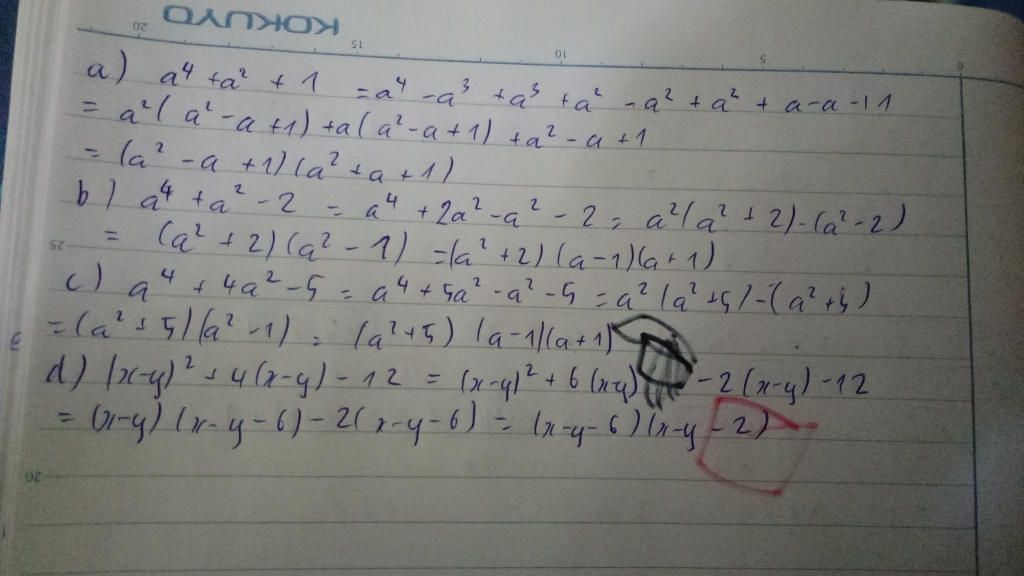 KOKUYO
20 15 10 5 0
a) a⁴ + a² + 1 = a⁴ - a³ + a³ + a² - a² + a² + a - a - 11
= a²(a² - a + 1) + a(a² - a + 1) + a² - a + 1
= (a² - a + 1)(a² + a + 1)
b) a⁴ + a² - 2 = a⁴ + 2a² - a² - 2 = a²(a² + 2) - (a² - 2)
25
= (a² + 2)(a² - 1) = (a² + 2)(a - 1)(a + 1)
c) a⁴ + 4a² - 5 = a⁴ + 5a² - a² - 5 = a²(a² + 5) - (a² + 5)
= (a² + 5)(a² - 1) = (a² + 5)(a - 1)(a + 1)
d) (x-y)² + 4(x-y) - 12 = (x-y)² + 6(xy) - 2(x-y) - 12
= (x-y)(x-y-6) - 2(x-y-6) = (x-y-6)(x-y-2)
20